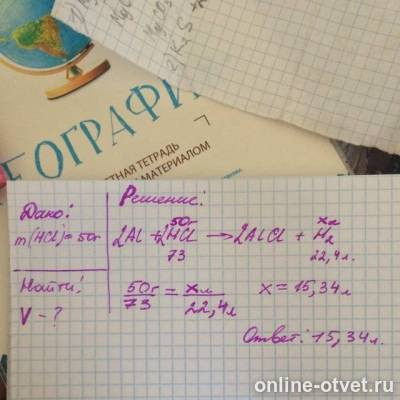 MgCO3
2) K2S
ГЕОГРАФИ
ТНАЯ ТЕТРАДЬ
МАТЕРИАЛОМ
7
Дано:
m(HCl)=50г
Найти:
V - ?
Решение:
50г xл
2Al + 2HCl → 2AlCl + H2
73 22,4л
50г/73 = xл/22,4л x = 15,34л
Ответ: 15,34л.
online-otvet.ru